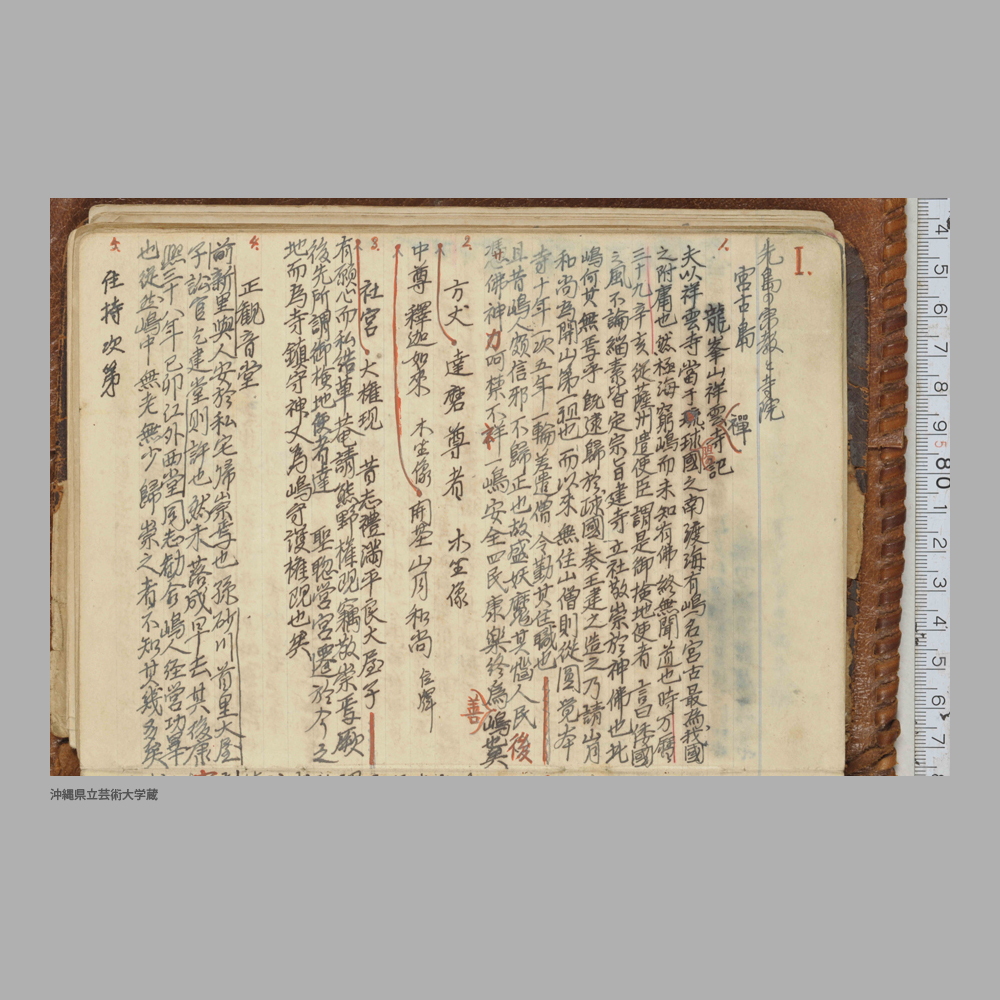 I.
宮古島
龍峯山祥雲寺記
禪
1.
夫以祥雲寺當于琉球國之南渡海有嶋名宮古最為我國
之附庸也然極海窮嶋而未知有佛終無聞道也時万曆
三十九辛亥從薩州遣使臣謂是御撿地使者言曰偀國
之風不論緇素皆定宗旨建寺立社敬崇於神佛也此
嶋何其無焉乎既遠歸於球國奏王建之造乃請山月
和尚為開山第一祖也而以來無住山僧則從圓覚本
寺十年一次五年一輪差遣僧令勤其住職也
且昔嶋人頗信邪不歸正也故盛妖魔其惱人民後
憑佛神力呵棟不祥一嶋安全四民康樂終為嶋
善
2.
方丈達磨尊者 木坐像
中尊釋迦如來 木坐像 開基山月和尚 位牌
3.
社宮大権現 昔志禮満平良大屋子
有願心而私結草菴請熊野権現竊敬崇焉厥
後先所謂御検地使者達 聖聡営宮遷於今之
地而為寺鎮守神又為嶋守護権現也矣
4.
正觀音堂
前新里與人安於私宅帰崇焉也孫砂川首里大屋
子訟官乞建堂則許也然未落成早去其後康
熙三十八年己卯江外西堂同志勧合嶋人経営功畢
也從然嶋中無老無少歸崇之者不知其幾多矣
5.
住持次第
4 5 6 7 8 9 5 80 1 2 3 4 5 6 7
沖縄県立芸術大学蔵